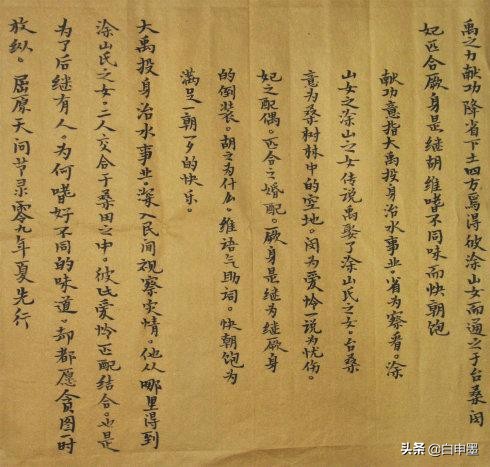 禹之力献功降省下土四方焉得彼涂山女而通之于台桑闵
妃匹合厥身是继胡维嗜不同味而快朝饱
献功意指大禹投身治水事业。省为察看。涂
山女之涂山之女传说禹娶了涂山氏之女。台桑
意为桑树林中的空地。闵为爱怜一说为忧伤。
妃之配偶。匹合之婚配。厥身是继为继厥身
的倒装。胡之为什么。维语气助词。快朝饱为
满足一朝夕的快乐。
大禹投身治水事业。深入民间视察灾情。他从哪里得到
涂山氏之女。二人交合于桑田之中。彼此爱怜匹配结合。也是
为了后继有人。为何嗜好不同的味道。却都愿贪图一时
放纵。屈原天问节录零九年夏先行
头条 @白申墨